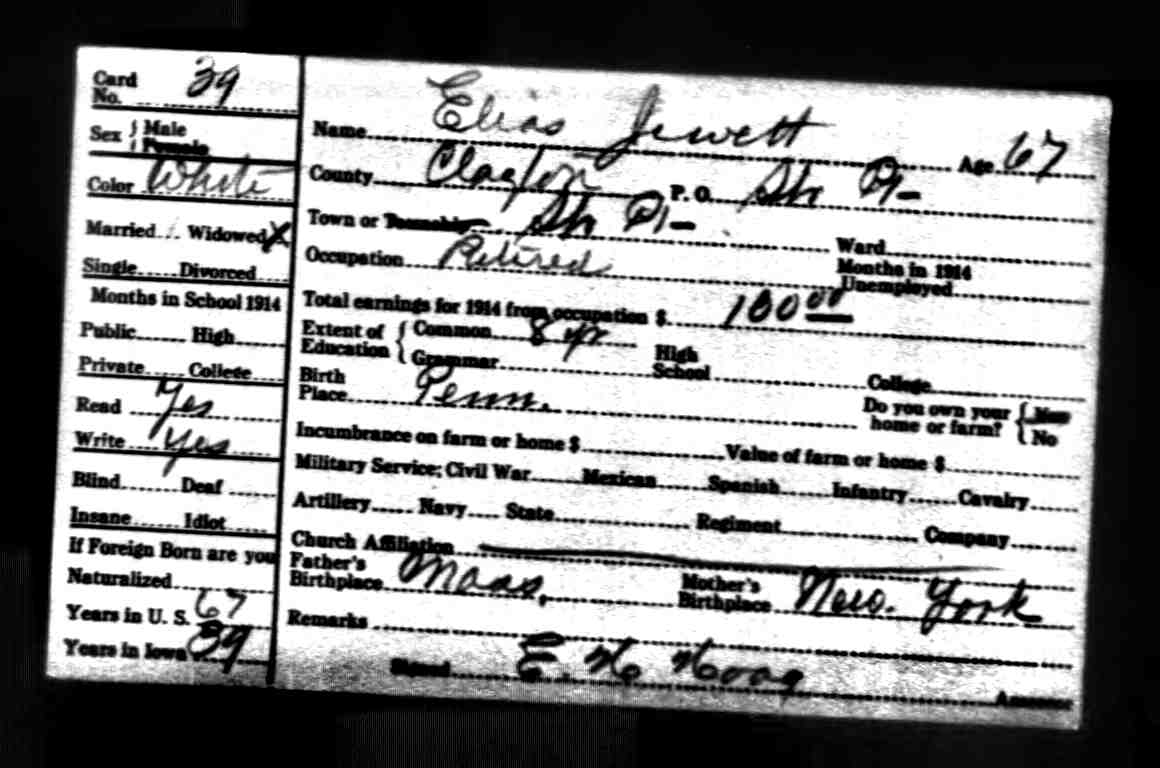 Card No. 39
Sex { Male
Female
Color White
Married Widowed X
Single Divorced
Months in School 1914
Public High
Private College
Read Yes
Write Yes
Blind Deaf
Insane Idiot
If Foreign Born are you
Naturalized
Years in U. S. 67
Years in Iowa 39
Name Elias Jewett Age 67
County Clayton P. O. Sh Pt-
Town or Township Sh Pt-
Ward
Occupation Retired
Months in 1914 Unemployed
Total earnings for 1914 from occupation $ 100 00
Extent of Education { Common 8 yr
Grammar
High School
College
Birth Place Penn.
Do you own your home or farm? { Yes
No
Incumbrance on farm or home $ Value of farm or home $
Military Service; Civil War Mexican Spanish Infantry Cavalry
Artillery Navy State Regiment Company
Church Affiliation
Father's Birthplace Mass. Mother's Birthplace New. York
Remarks
Signed E. H Hoag Assessor